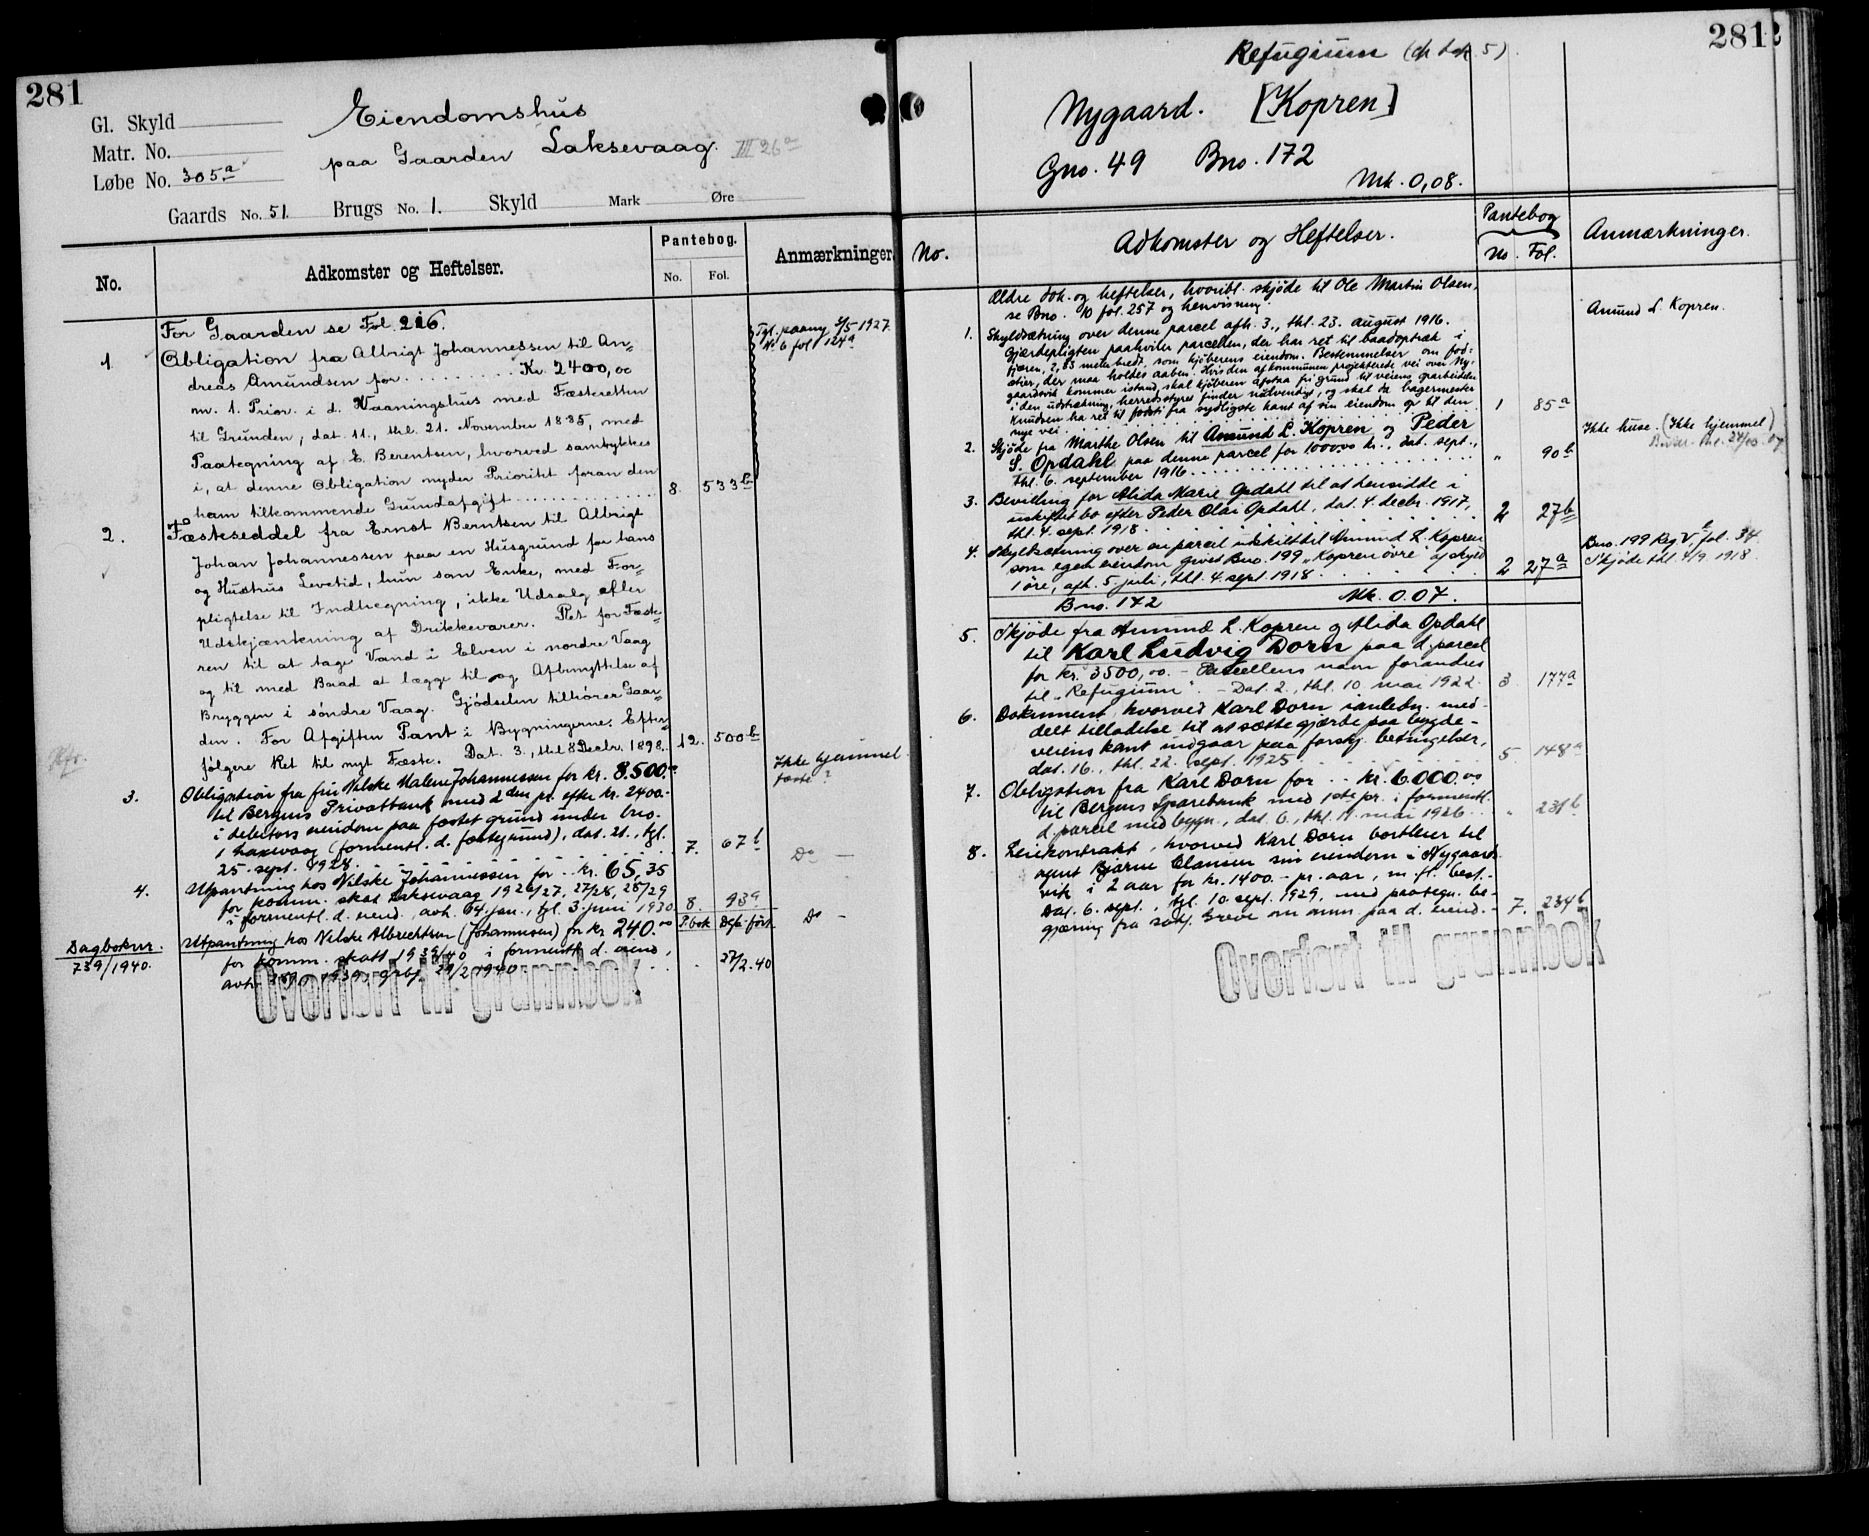 281
Gl. Skyld
Matr. No.
Løbe No. 305a
Eiendomshus
paa Gaarden Laksevaag. III 26a
Gaards No. 51. Brugs No. 1. Skyld Mark Øre
No.
Adkomster og Heftelser.
Pantebog.
No. Fol.
Anmærkninger
For Gaarden se Fol. 216.
1 Obligation fra Albrigt Johannessen til An-
dreas Amundsen for . . . . . . . . Kr. 2400,00
m. 1. Prior. i d. Vaaningshus med Fæsteretten
til Grunden, dat. 11., thl. 21. November 1885, med
Paategning af E. Berentsen, hvorved samtykkes
i, at denne Obligation nyder Prioritet foran den
ham tilkommende Grundafgift . . . . . . . . 8. 533b
Tgl. paany 5/5 1927.
No 6 fol 124a
2. Fæsteseddel fra Ernst Berntsen til Albrigt
Johan Johannessen paa en Husgrund for hans
og Hustrus Levetid, hun som Enke, med For-
pligtelse til Indhegning, ikke Udsalg eller
Udskjænkning af Drikkevarer. Ret for Fæste-
ren til at tage Vand i Elven i nordre Vaag
og til med Baad at lægge til og Afbenyttelse af
Bryggen i søndre Vaag. Gjødselen tilhører Gaar-
den. For Afgiften Pant i Bygningerne. Efter-
følgere Ret til nyt Fæste. Dat. 3., thl. 8 Decbr. 1898. 12. 500b
3. Obligation fra fru Nilske Malene Johannessen for kr. 8.500.-
til Bergens Privatbank med 2den pr. efter kr. 2400.-
i debitors eiendom paa fæstet grund under bno.
1 Laxevaag (formentl. d. fæstegrund), dat. 21., tgl.
25. sept. 1928. . . . . . . . . . 7. 67b
Ikke hjemmel
fæste?
4. Utpantning hos Nilske Johannessen for . . kr. 65,35
for komm. skat Laksevaag 1926/27, 27/28, 28/29
i formentl. d. eiend., avh. 14. jan., tgl. 3. juni 1930 8. 939
Do —
Dagboknr.
739/1940.
Utpantning hos Nilske Albrechtsen (Johannesen) for kr. 240.00
for komm. skatt 1939/40 i formentl. d. eiend.,
P.bok Dgb. ført
27/2.40
Do —
Overført til grunnbok
281
Refugium (cfr dok. 5).
Nygaard. [Kopren]
Gno. 49 Bno. 172
Mk. 0,08.
No.
Adkomster og Heftelser.
Pantebog
No. Fol.
Anmærkninger.
Ældre dok. og heftelser, hvoribl. skjøde til Ole Martin Olsen,
se Bno. 10 fol. 257 og henvisning.
Amund L. Kopren.
1. Skyldsætning over denne parcel afh. 3., thl. 23. august 1916.
Gjærdepligten paahviler parcellen, der har ret til baadoptræk i
fjæren, 2,83 meter bredt, som kjøberens eiendom. Bestemmelser om fod-
stier, der maa holdes aaben. Hvis den af kommunen projekterede vei over Ny-
gaardsvik kommer istand, skal kjøberen afstaa fri grund til veiens oparbeidelse
i den udstrækning, herredsstyret finder nødvendigt, og skal da bagermester
Knudsen ha ret til fodsti fra sydligste kant af sin eiendom op til den
nye vei . . . . . . . . . . 1 85a
2. Skjøde fra Marthe Olsen til Amund L. Kopren og Peder
S. Opdahl paa denne parcel for 1000,00 kr., dat. sept.,
thl. 6. september 1916. . . . . . . . . " 90b
Ikke huse. (Ikke hjemmel)
3. Bevilling for Alida Marie Opdahl til at hensidde i
uskiftet bo efter Peder Olai Opdahl, dat. 4. decbr. 1917,
thl. 4. sept. 1918. . . . . . . . . 2 27b
4. Skyldsætning over en parcel udskilt til Amund L. Kopren
som egen eiendom givet Bno. 199 „Kopren øvre" af skyld
1 øre, afh. 5 juli, thl. 4. sept 1918. . . . . . 2 27a
Bno. 199 Reg. V, fol. 34.
Skjøde thl. 4/9 1918.
Bno. 172 Mk. 0.07.
5. Skjøde fra Amund L. Kopren og Alida Opdahl
til Karl Ludvig Dorn paa d. parcel
for kr. 3500,00. – Parcellens navn forandres
til „Refugium". – Dat. 2., thl. 10. mai 1922. 3 177a
6. Dokument, hvorved Karl Dorn
delt tilladelse til at sætte gjærde paa bygde-
veiens kant indgaar paa forskj. betingelser,
dat. 16., thl. 22. sept. 1925 . . . . . 5 148a
7. Obligation fra Karl Dorn for . . kr. 6000.00
til Bergens Sparebank med 1ste pr. i formentl.
d. parcel med bygn., dat. 6., thl. 11. mai 1926. . . " 231b
8. Leiekontrakt, hvorved Karl Dorn bortleier til
agent Bjarne Clausen sin eiendom i Nygaards-
vik i 2 aar for kr. 1400.- pr. aar, m. fl. best.-
Dat. 6. sept., tgl. 10. sept. 1929, med paategn. be-
gjæring fra Greve om anm. paa d. eiend.- 7. 234b
Overført til grunnbok